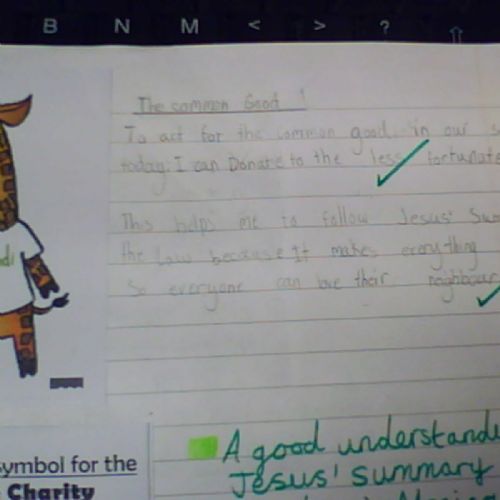 B N M < > ?
The common Good !
To act for the common good in our s
today: I can Donate to the less fortunate
This helps me to follow Jesus' Sum
the law because it makes everything
So everyone can love their neighbour
ndi
symbol for the
Charity
A good understandi
Jesus' summary